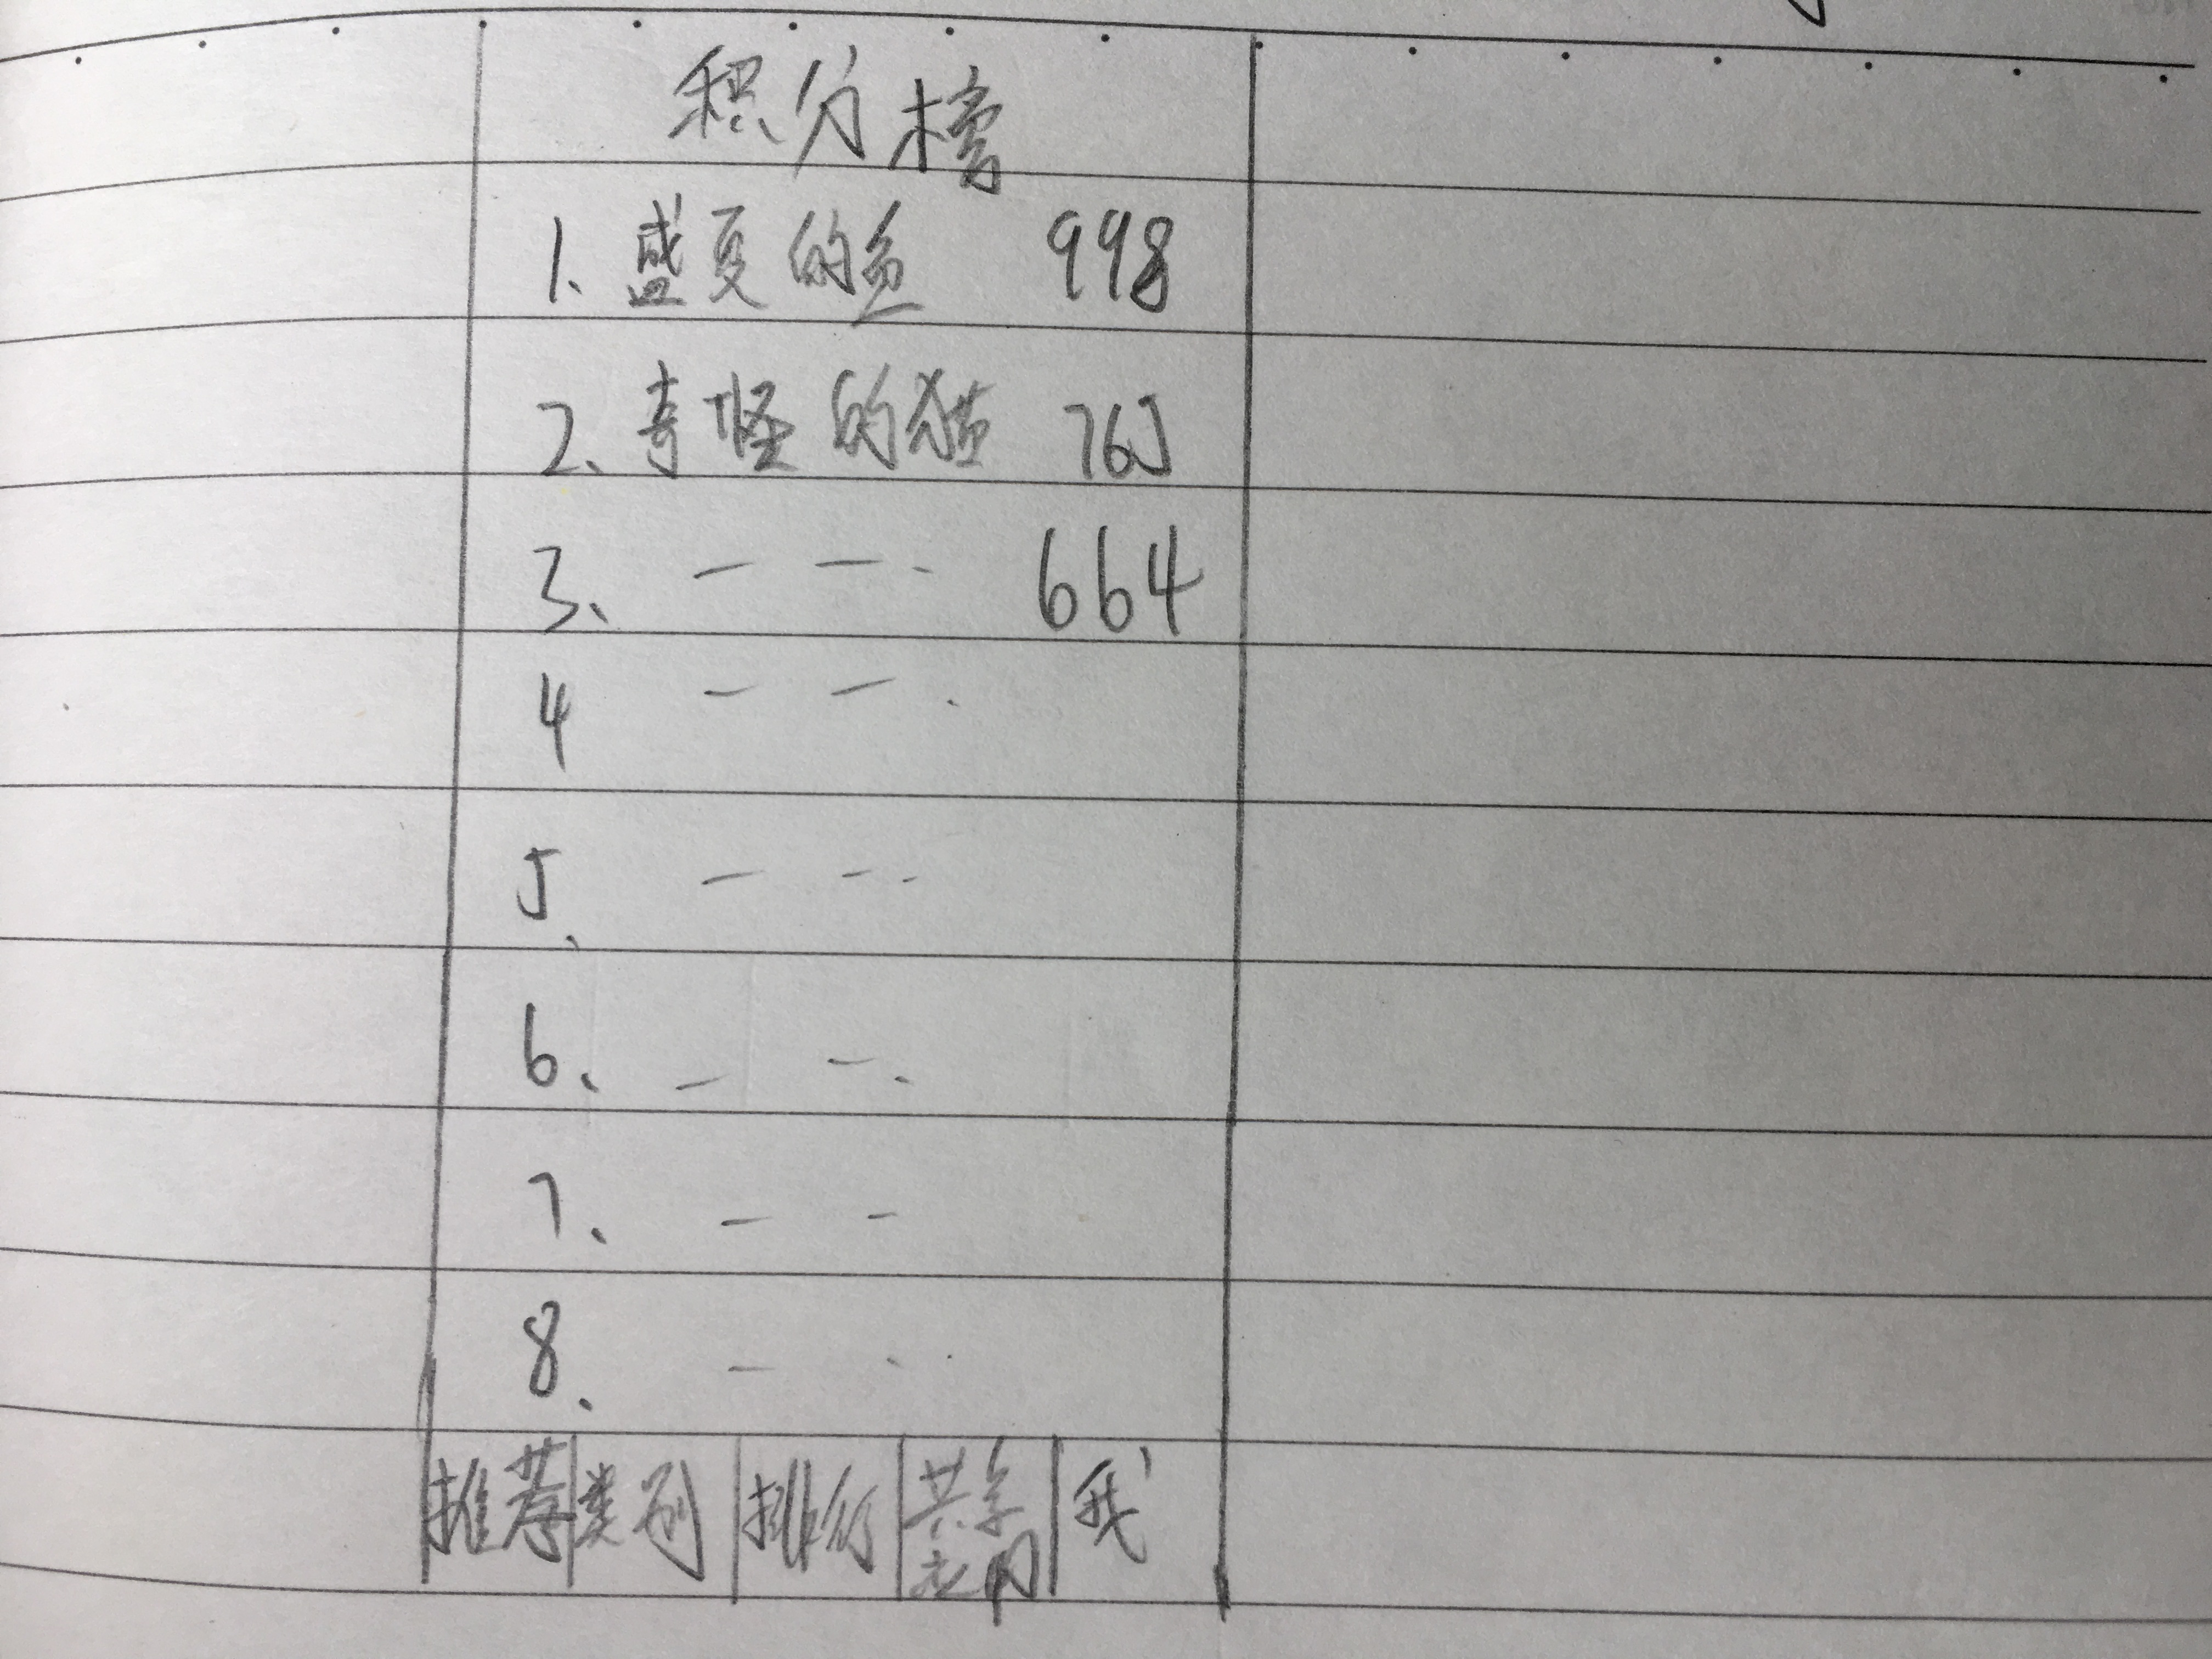 积分榜
1、盛夏的鱼 998
2、奇怪的猫 765
3、— — - 664
4 — — .
5、— - -
6、— — .
7、— -
8、— - .
推荐 类别 排行 共享 我